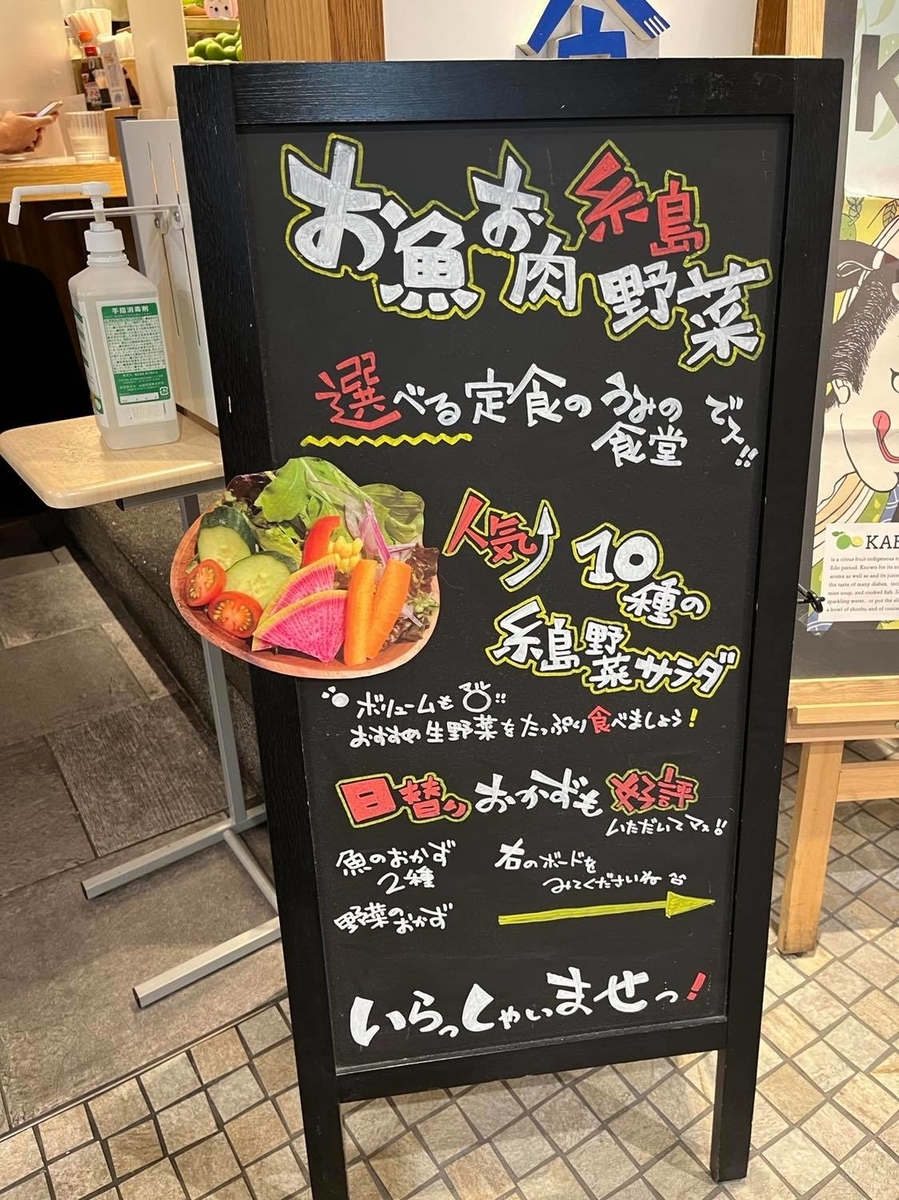 お魚お肉糸島野菜
選べる定食のうみの食堂でス!!
人気
10種の
糸島野菜サラダ
ボリュームも
おすすめ生野菜をたっぷり食べましょう!
日替りおかずも好評
いただいてマス!!
魚のおかず
2種
野菜のおかず
右のボードを
みてくださいね
いらっしゃいませっ!
手指消毒剤
K
KAB
is a citrus fruit indigenous
Edo period. Known for its
aroma as well as and its juice
the taste of many dishes, incl
miso soup, and cooked fish.
sparkling water, or put the sli
a bowl of shochu and of course